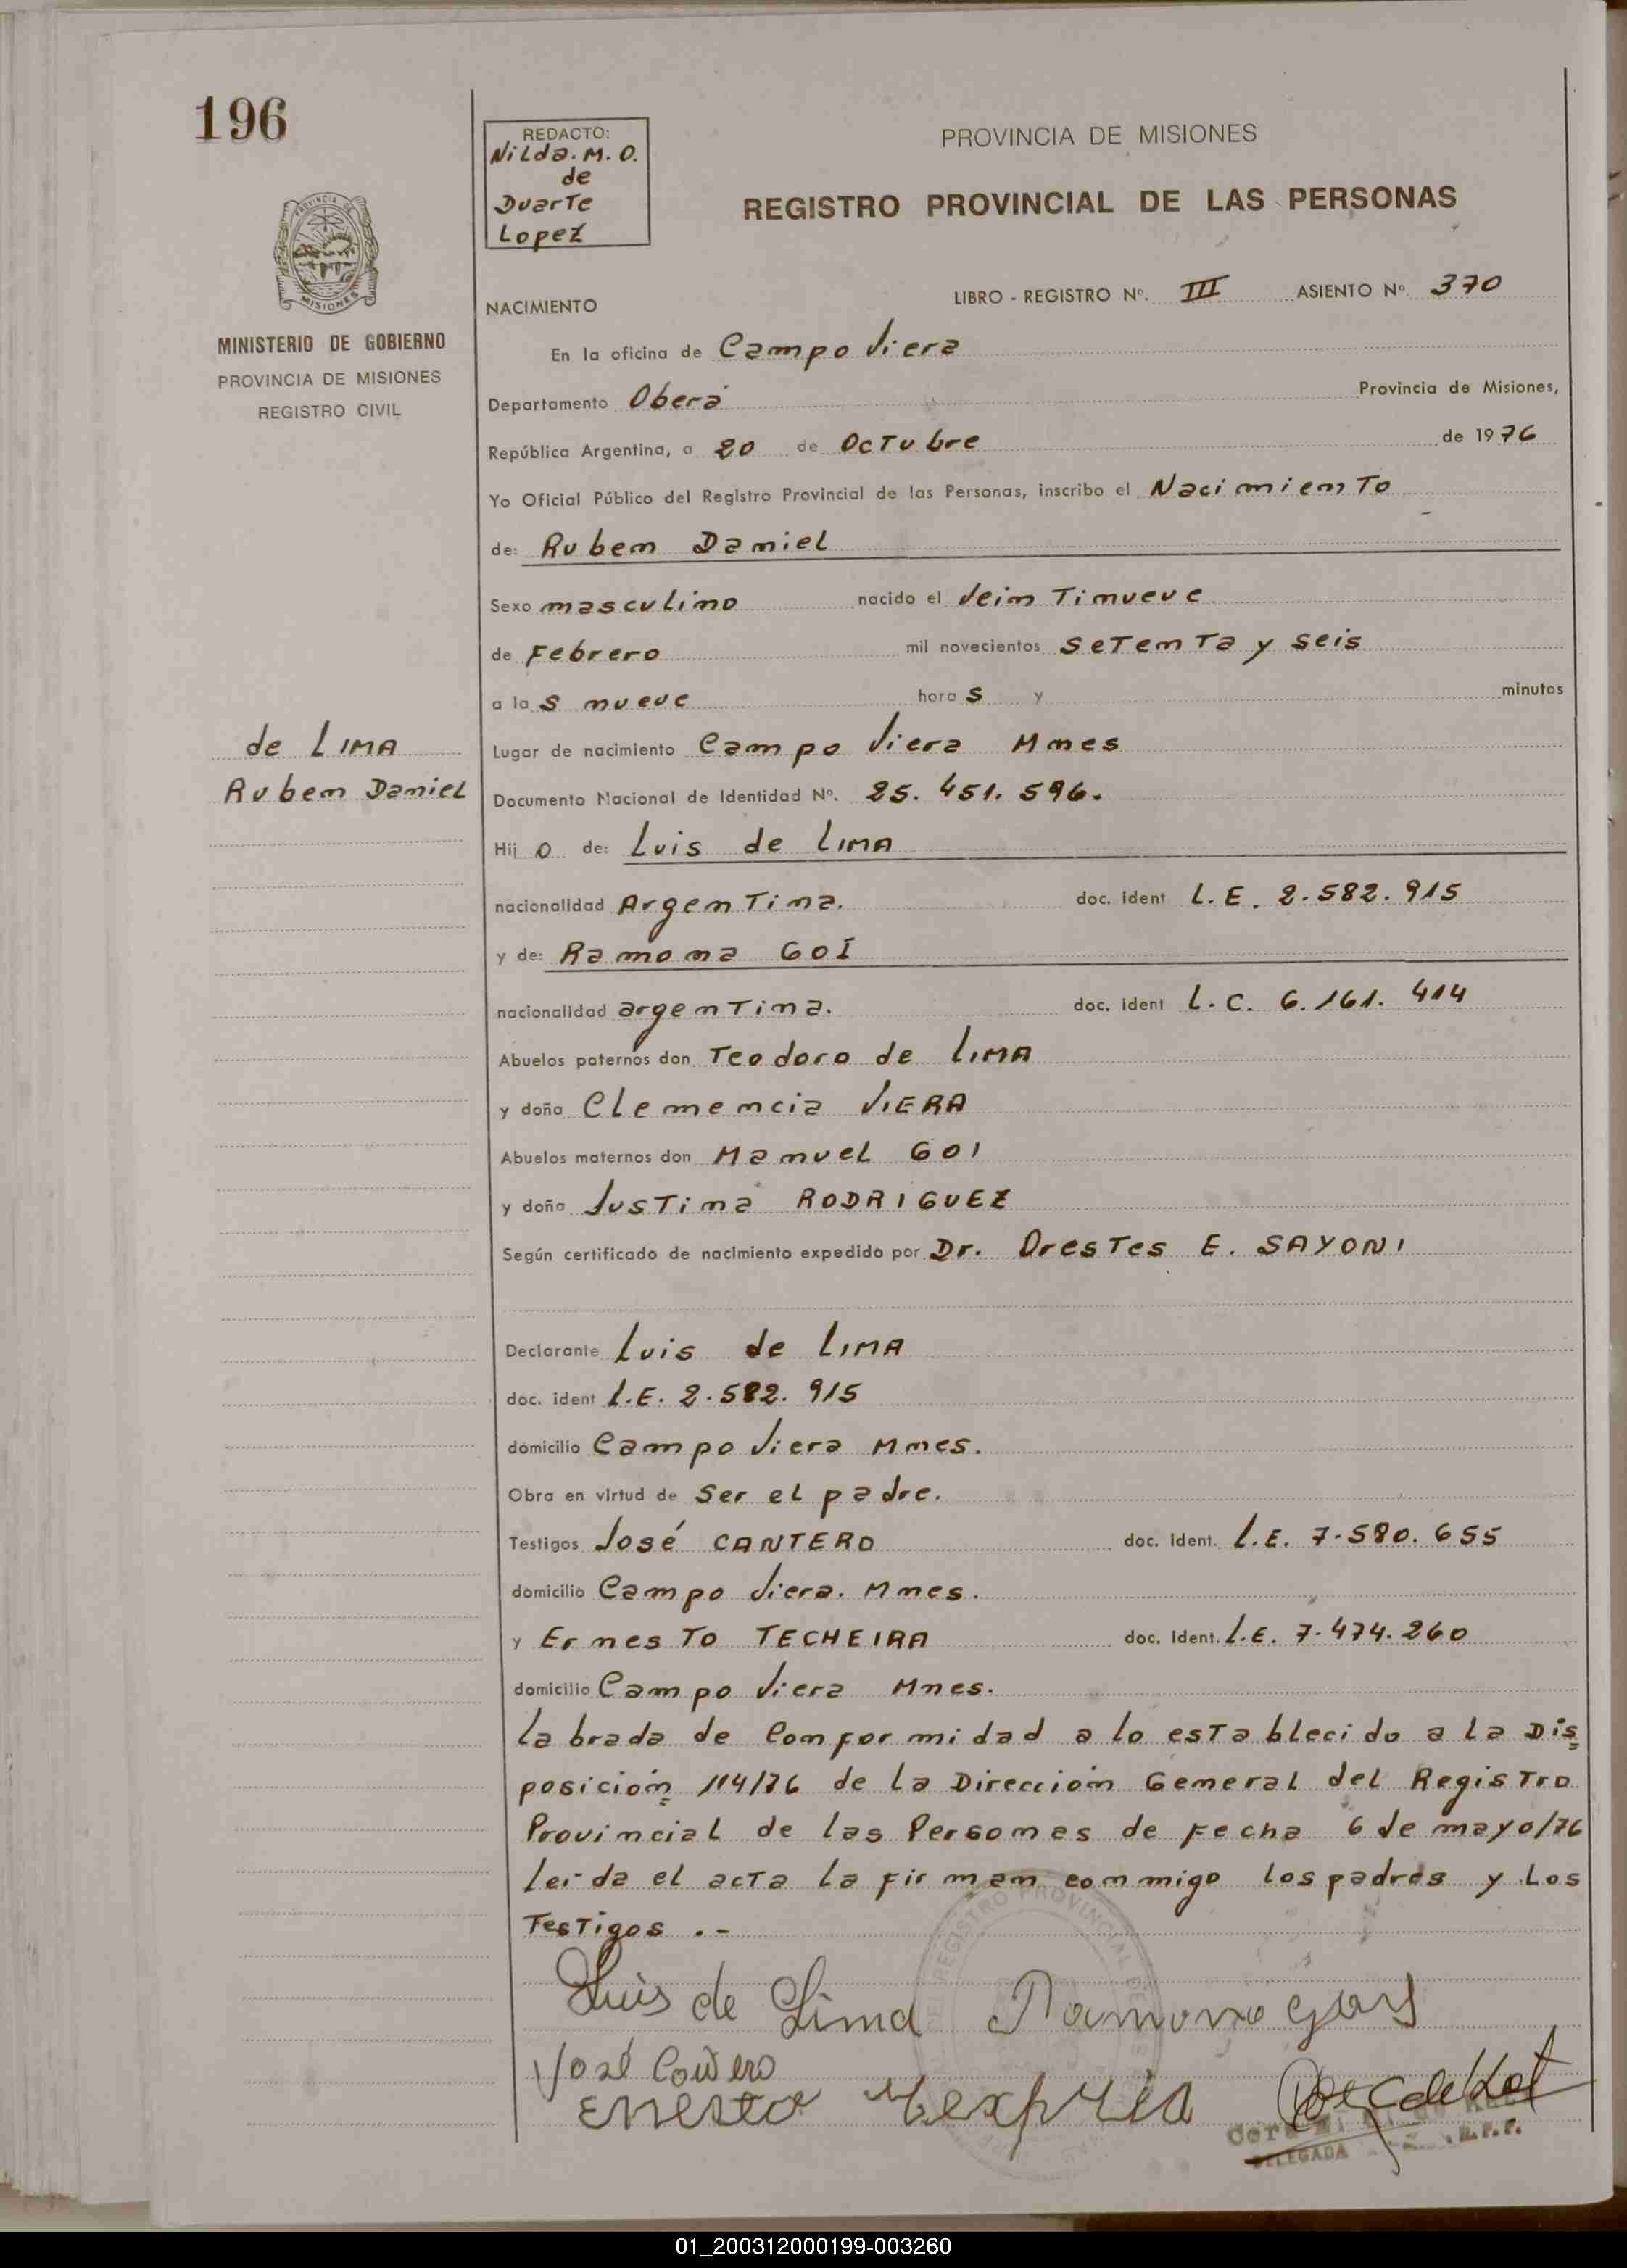 196
REDACTO:
Nilda. M. O.
de
Duarte
Lopez
PROVINCIA DE MISIONES
REGISTRO PROVINCIAL DE LAS PERSONAS
PROVINCIA DE
MISIONES
MINISTERIO DE GOBIERNO
PROVINCIA DE MISIONES
REGISTRO CIVIL
NACIMIENTO LIBRO - REGISTRO Nº. III ASIENTO Nº 370
En la oficina de Campo Viera
Departamento Oberá Provincia de Misiones,
República Argentina, a 20 de Octubre de 1976
Yo Oficial Público del Registro Provincial de las Personas, inscribo el Nacimiento
de: Ruben Daniel
Sexo masculino nacido el Veintinueve
de Febrero mil novecientos Setenta y seis
a las nueve horas y minutos
de LIMA
Ruben Daniel
Lugar de nacimiento Campo Viera Mnes
Documento Nacional de Identidad Nº. 25.451.596.
Hijo de: Luis de LIMA
nacionalidad Argentina. doc. ident L.E. 2.582.915
y de: Ramona GOI
nacionalidad argentina. doc. ident L.C. 6.161.414
Abuelos paternos don Teodoro de LIMA
y doña Clemencia VIERA
Abuelos maternos don Manuel GOI
y doña Justina RODRIGUEZ
Según certificado de nacimiento expedido por Dr. Orestes E. SAYONI
Declarante Luis de LIMA
doc. ident L.E. 2.582.915
domicilio Campo Viera Mnes.
Obra en virtud de Ser el padre.
Testigos José CANTERO doc. ident. L.E. 7.580.655
domicilio Campo Viera. Mnes.
y Ernesto TECHEIRA doc. Ident. L.E. 7.474.260
domicilio Campo Viera Mnes.
labrada de Conformidad a lo establecido a la Dis=
posición 114/76 de la Dirección General del Registro
Provincial de las Personas de Fecha 6 de mayo/76
leida el acta la firman conmigo los padres y los
Testigos .-
Luis de Lima Ramona
José
Ernesto
REGISTRO PROVINCIAL DE
DELEGADA R.P.P.
01_200312000199-003260